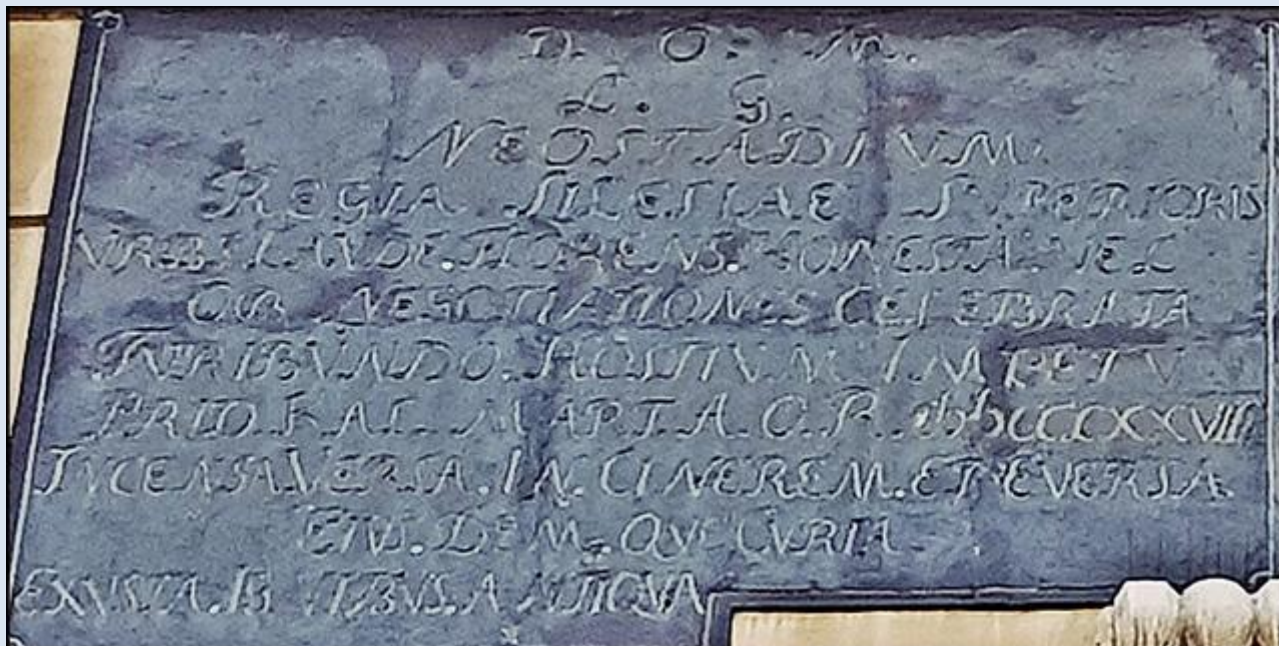 D. O. M.
L. G.
NEOSTADIVM
REGIA SILESIAE SVPERIORIS
VRBS LAVDE. FLORENS. HONESTA.
OB NEGOTIATIONES CELEBRATA
FVRIBVNDO. HOSTIVM IMPETV
PRID. KAL. MART. A. O. R.
INCENSA VERSA. IN. CINEREM. ET EVERSA.
EIVS. DEM. QVE CVRIA
EXVSTA. ANTIQVA